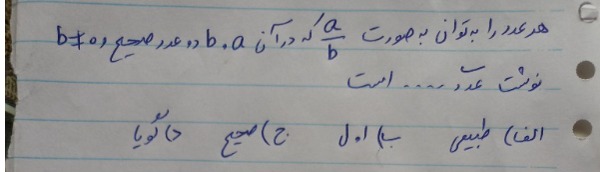 هر عدد را به توان به صورت a/b که در آن a، b دو عدد صحیح و b≠0
نوشت عدد ..... است
الف) طبیعی ب) اول ج) صحیح د) گویا